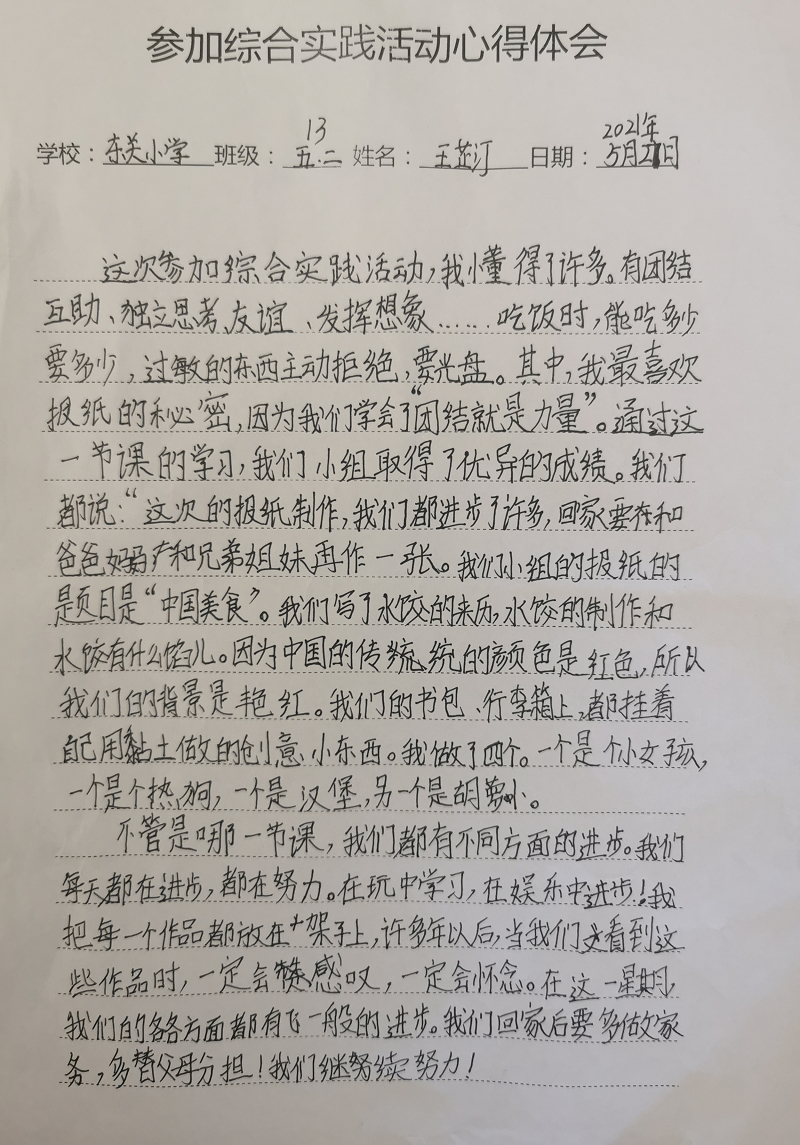 参加综合实践活动心得体会
13 2021年
学校：东关小学 班级：五.二 姓名：王芷汀 日期：5月21日
这次参加综合实践活动，我懂得了许多。有团结
互助、独立思考、友谊、发挥想象……吃饭时，能吃多少
要多少，过敏的东西主动拒绝，要光盘。其中，我最喜欢
报纸的秘密，因为我们学会了“团结就是力量”。通过这
一节课的学习，我们小组取得了优异的成绩。我们
都说：“这次的报纸制作，我们都进步了许多，回家要和
爸爸妈妈和兄弟姐妹再作一张。我们小组的报纸的
题目是“中国美食”。我们写了水饺的来历，水饺的制作和
水饺有什么馅儿。因为中国的传统的颜色是红色，所以
我们的背景是艳红。我们的书包、行李箱上，都挂着
自己用黏土做的创意小东西。我做了四个。一个是个小女孩，
一个是个热狗，一个是汉堡，另一个是胡萝卜。
不管是哪一节课，我们都有不同方面的进步。我们
每天都在进步，都在努力。在玩中学习，在娱乐中进步！我
把每一个作品都放在架子上，许多年以后，当我们看到这
些作品时，一定会感叹，一定会怀念。在这一星期，
我们的各各方面都有飞一般的进步。我们回家后要多做家
务，多替父母分担！我们继续努力！